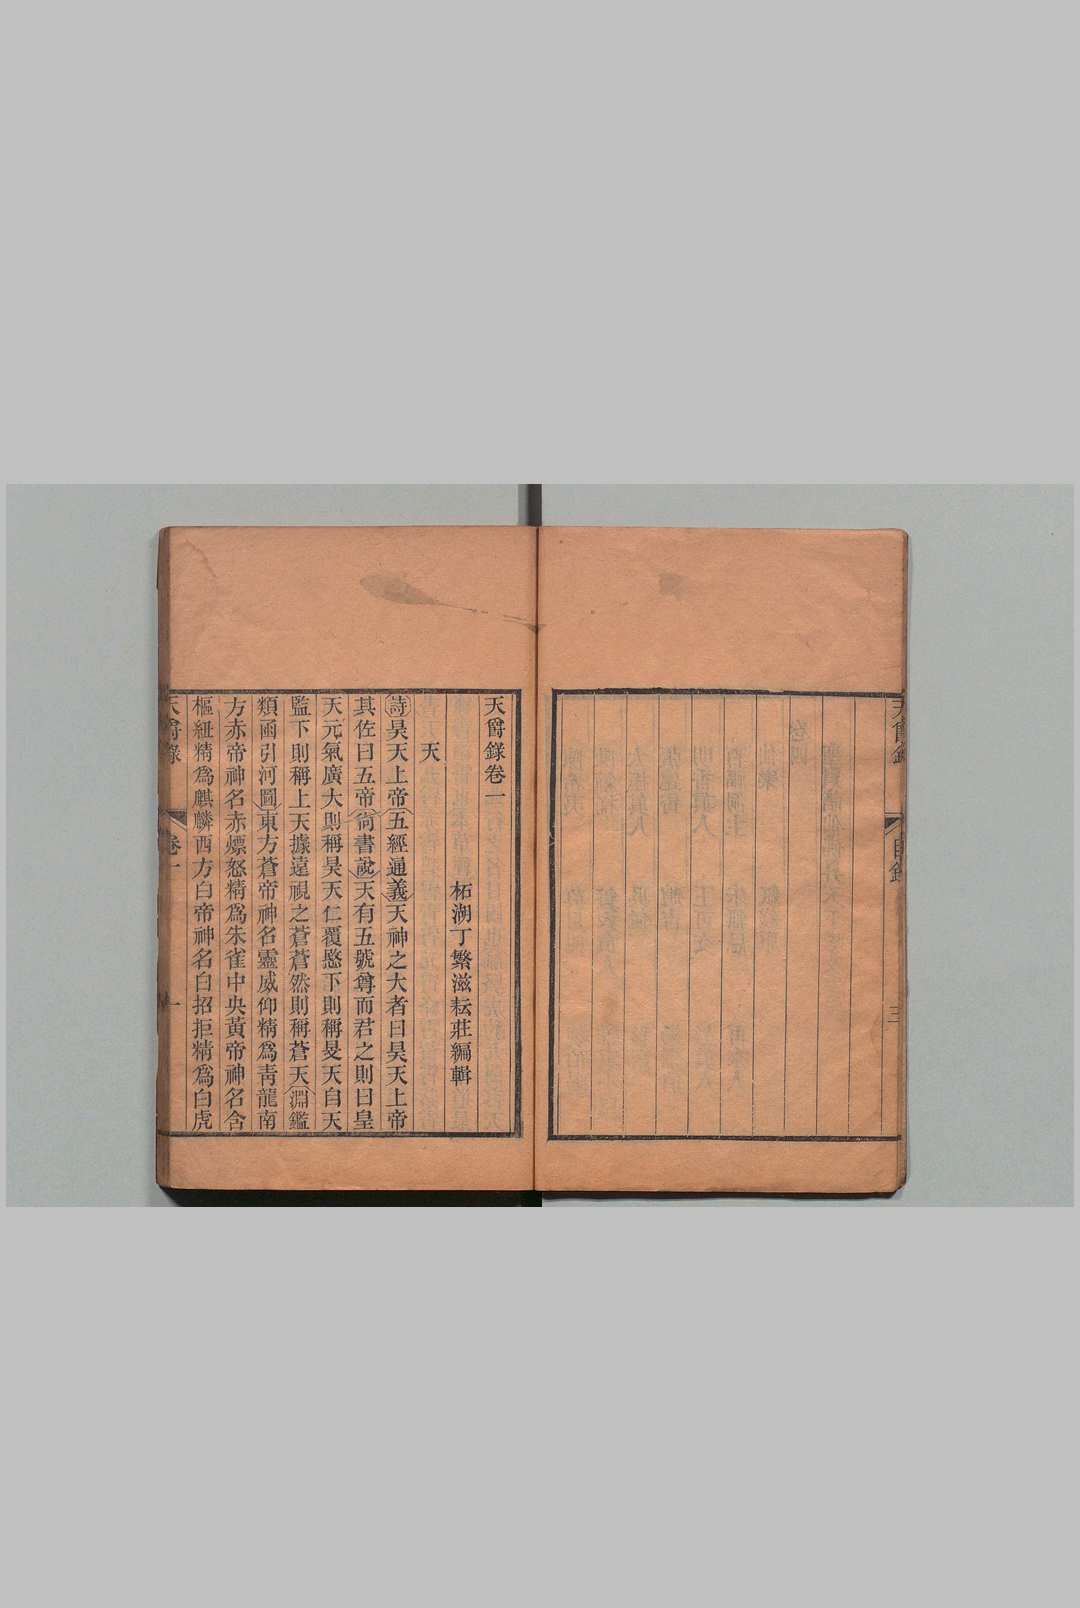 天爵錄
目錄
三
天爵錄卷一
柘湖丁繁滋耘莊編輯
天
詩昊天上帝五經通義天神之大者曰昊天上帝
其佐曰五帝尙書說天有五號尊而君之則曰皇
天元氣廣大則稱昊天仁覆慜下則稱旻天自天
監下則稱上天據遠視之蒼蒼然則稱蒼天淵鑑
類函引河圖東方蒼帝神名靈威仰精爲靑龍南
方赤帝神名赤熛怒精爲朱雀中央黃帝神名含
樞紐精爲麒麟西方白帝神名白招拒精爲白虎
天爵錄
卷一
一